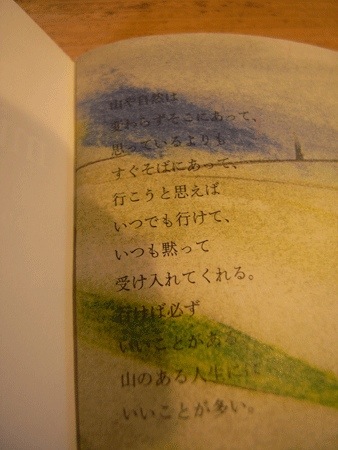 山や自然は
変わらずそこにあって、
思っているよりも
すぐそばにあって、
行こうと思えば
いつでも行けて、
いつも黙って
受け入れてくれる。
行けば必ず
いいことがある
山のある人生には
いいことが多い。